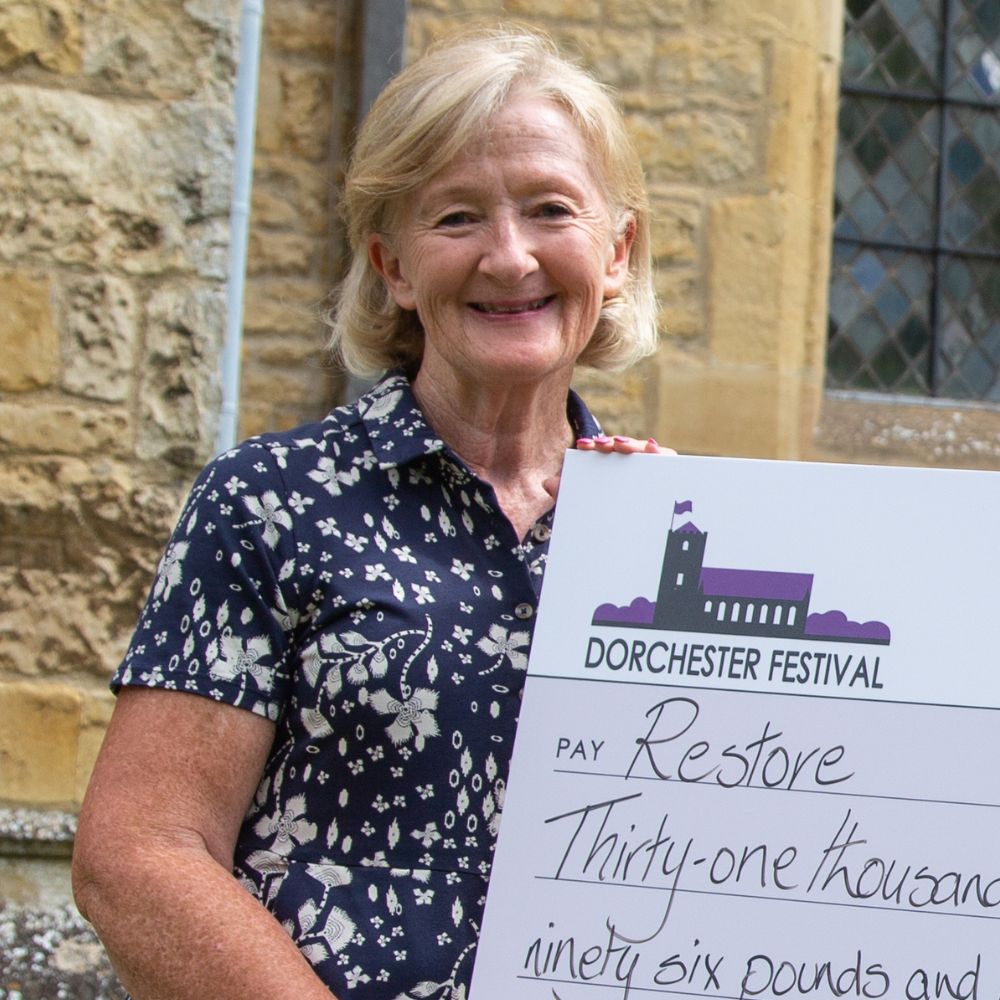 DORCHESTER FESTIVAL
PAY Restore
Thirty-one thousand
ninety six pounds and